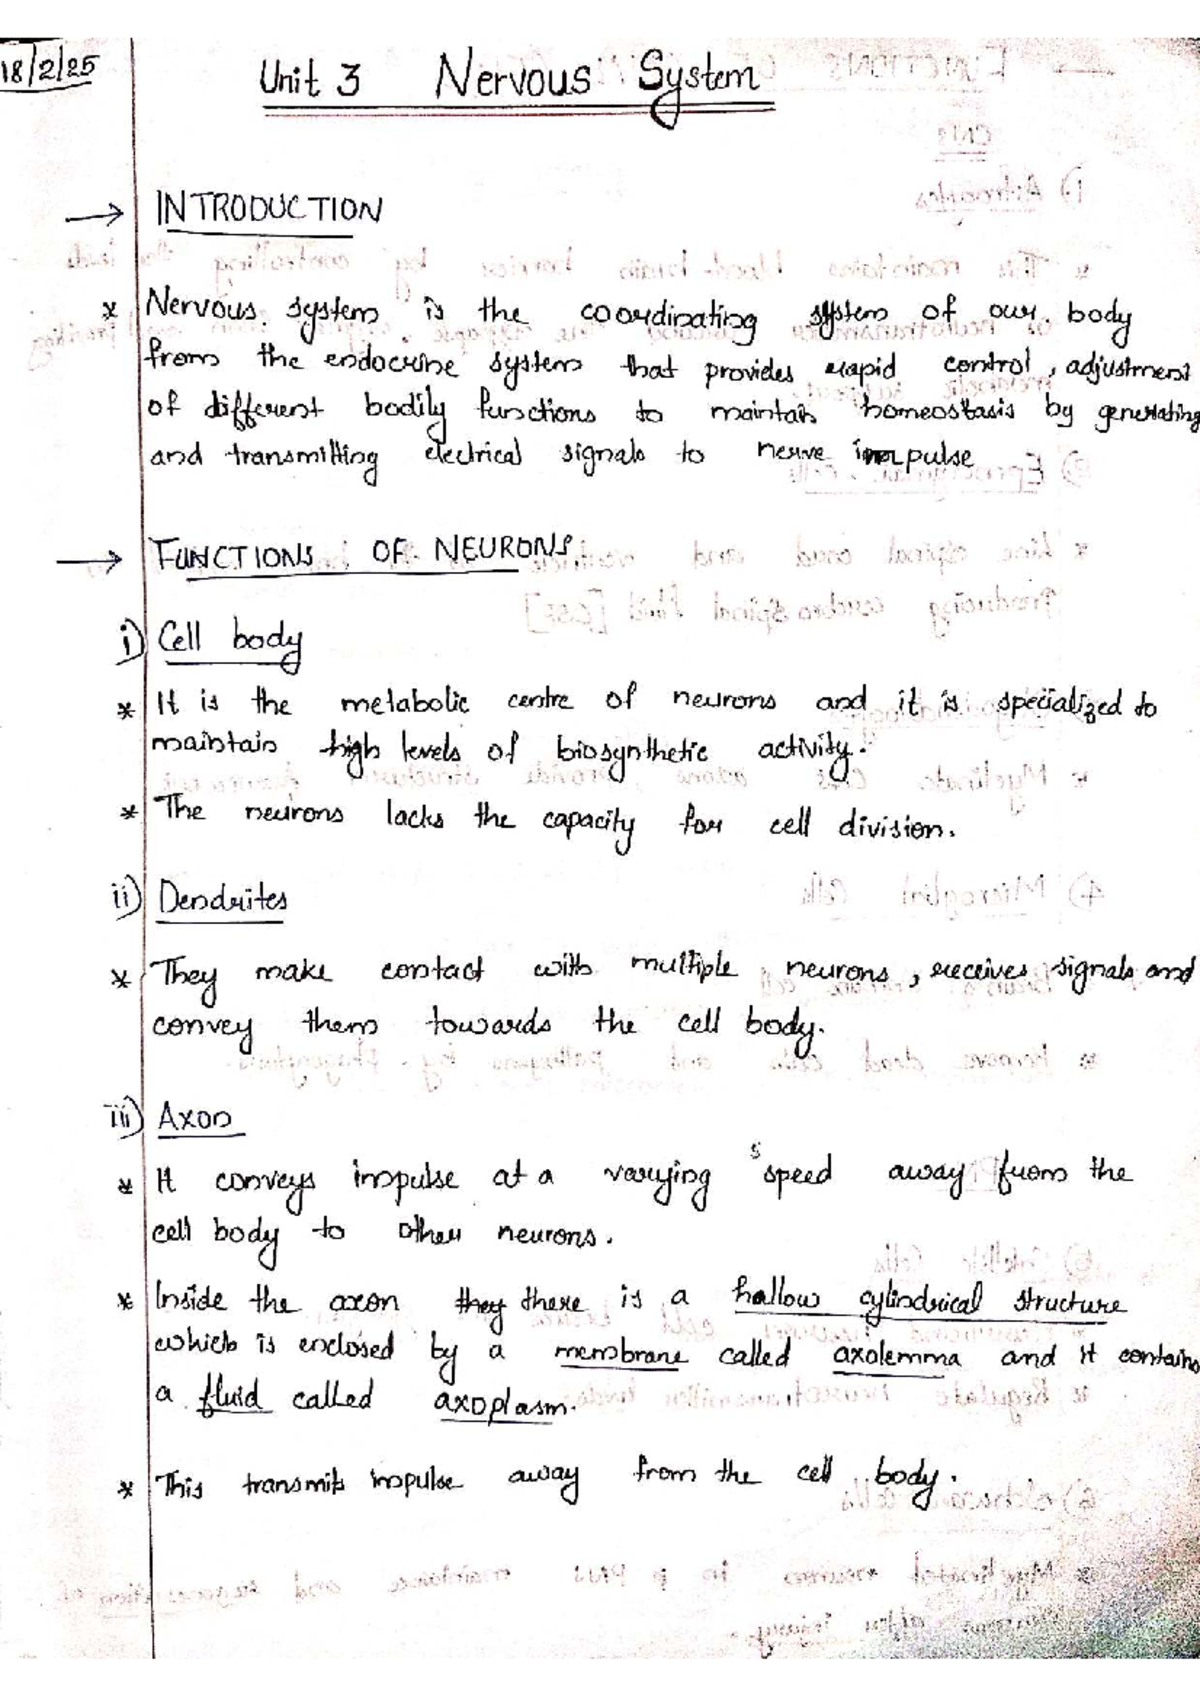 18/2/25
Unit 3 Nervous System
→ INTRODUCTION
* Nervous system is the coordinating system of our body
from the endocrine system that provides rapid control, adjustment
of different bodily functions to maintain homeostasis by generating
and transmitting electrical signals to nerve impulse
→ FUNCTIONS OF NEURONS
i) Cell body
* It is the metabolic centre of neurons and it is specialized to
maintain high levels of biosynthetic activity.
* The neurons lacks the capacity for cell division.
ii) Dendrites
* They make contact with multiple neurons, receives signals and
convey them towards the cell body.
iii) Axon
* It conveys impulse at a varying speed away from the
cell body to other neurons.
* Inside the axon they there is a hallow cylindrical structure
which is enclosed by a membrane called axolemma and it contains
a fluid called axoplasm.
* This transmits impulse away from the cell body.